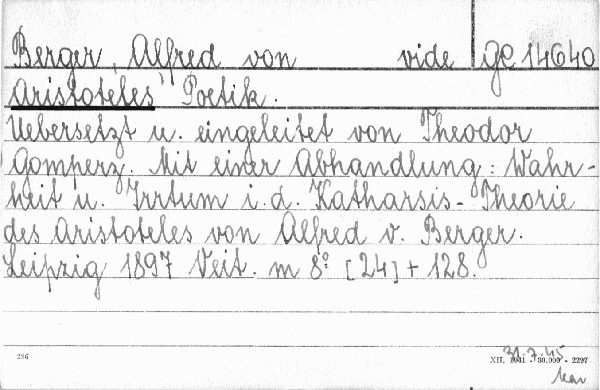 Berger, Alfred von vide gC 14640
Aristoteles' Poetik.
Uebersetzt u. eingeleitet von Theodor
Gomperz. Mit einer Abhandlung: Wahr-
heit u. Irrtum i. d. Katharsis-Theorie
des Aristoteles von Alfred v. Berger.
Leipzig 1897 Veit. m 8° [24] + 128.
31.7.45
286 XII. 1941 - 30.000 - 2297